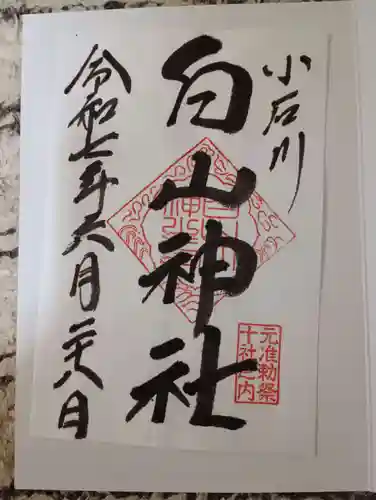 小石川
白山神社
元准勅祭
十社之内
令和七年六月二十八日